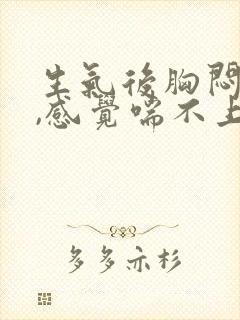 生氣後胸悶
,感覺喘不上
多多亦杉